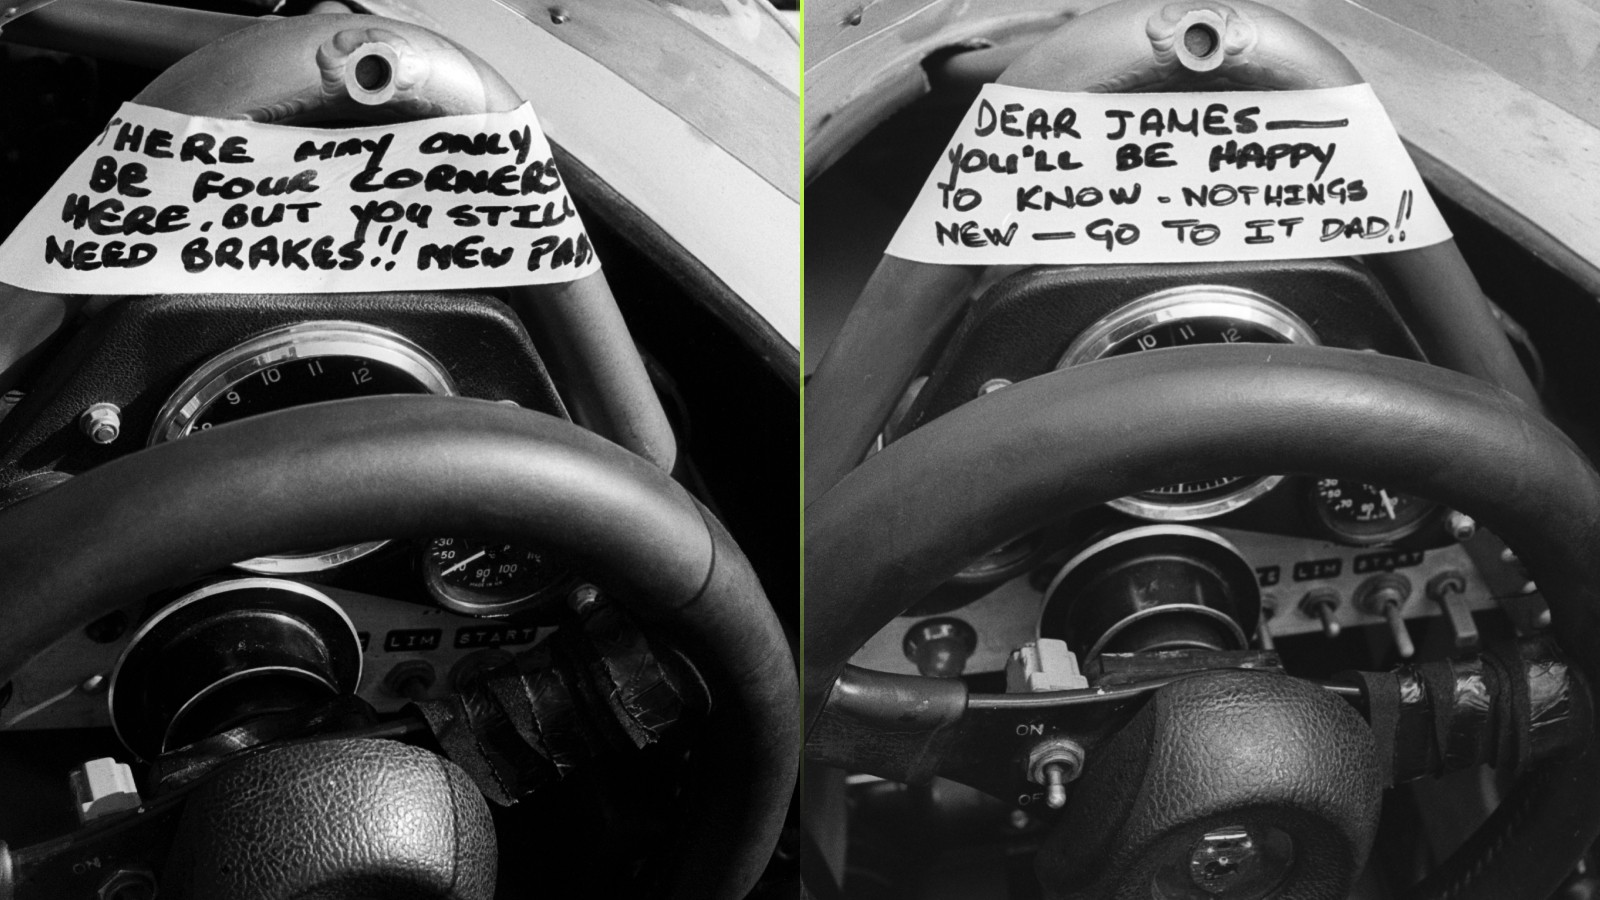 THERE MAY ONLY
BE FOUR CORNERS
HERE, BUT YOU STILL
NEED BRAKES!! NEW PADS
9 10 11 12
30
50
70 90 100
LIM START
ON
DEAR JAMES —
YOU'LL BE HAPPY
TO KNOW - NOTHINGS
NEW — GO TO IT DAD!!
10 11 12
30
50
70 90
LIM START
ON